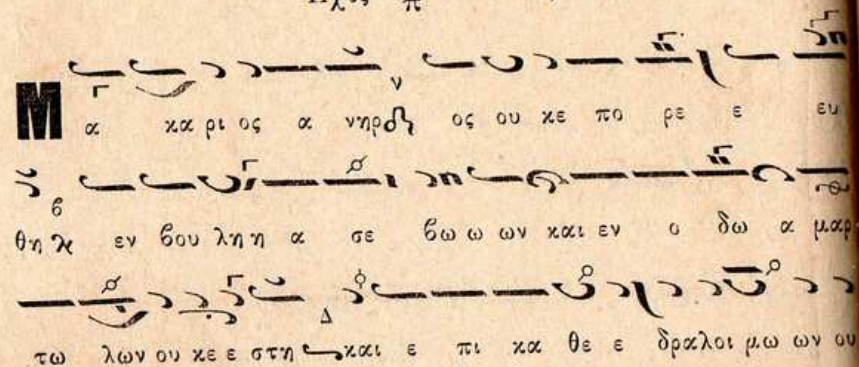 Μα κα ρι ος α νηρ ος ου κε πο ρε ε ευ
θη εν βου λη η α σε βω ω ων και εν ο δω α μαρ
τω λων ου κε ε στη και ε πι κα θε ε δρα λοι μω ων ου